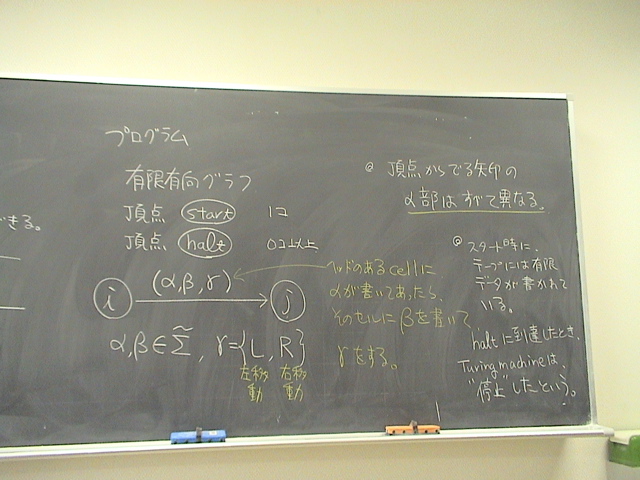 きる。
プログラム
有限有向グラフ
頂点 start 1コ
頂点 halt 0コ以上
i (α,β,γ) j
α,β∈Σ̃, γ={L,R}
左移動 右移動
ヘッドのあるcellに
αが書いてあったら、
そのセルにβを書いて
γをする。
@ 頂点からでる矢印の
α部はすべて異なる。
@ スタート時に、
テープには有限
データが書かれて
いる。
haltに到達したとき、
Turing machineは、
"停止"したという。